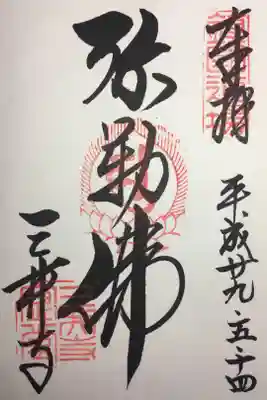 奉拝
平成廿九·五·十四
弥勒佛
三井寺